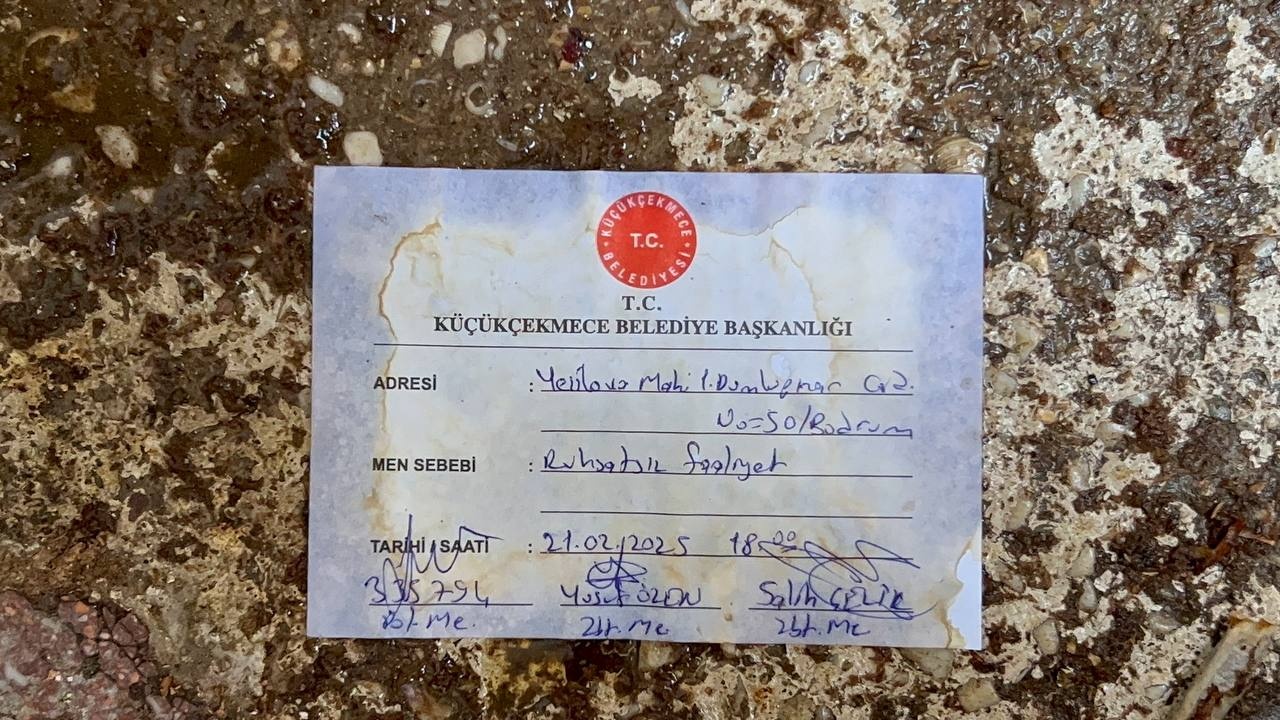 KÜÇÜKÇEKMECE BELEDİYESİ
T.C.
T.C.
KÜÇÜKÇEKMECE BELEDİYE BAŞKANLIĞI
ADRESİ : Yeşilova Mah 1.Dumlupınar Cad.
No=50/Bodrum
MEN SEBEBİ : Ruhsatsız faaliyet
TARİHİ / SAATİ : 21.02.2025 18 00
335794 Yusuf ÖZEN Salih ÇELİK
Zbt.Me. Zbt.Me